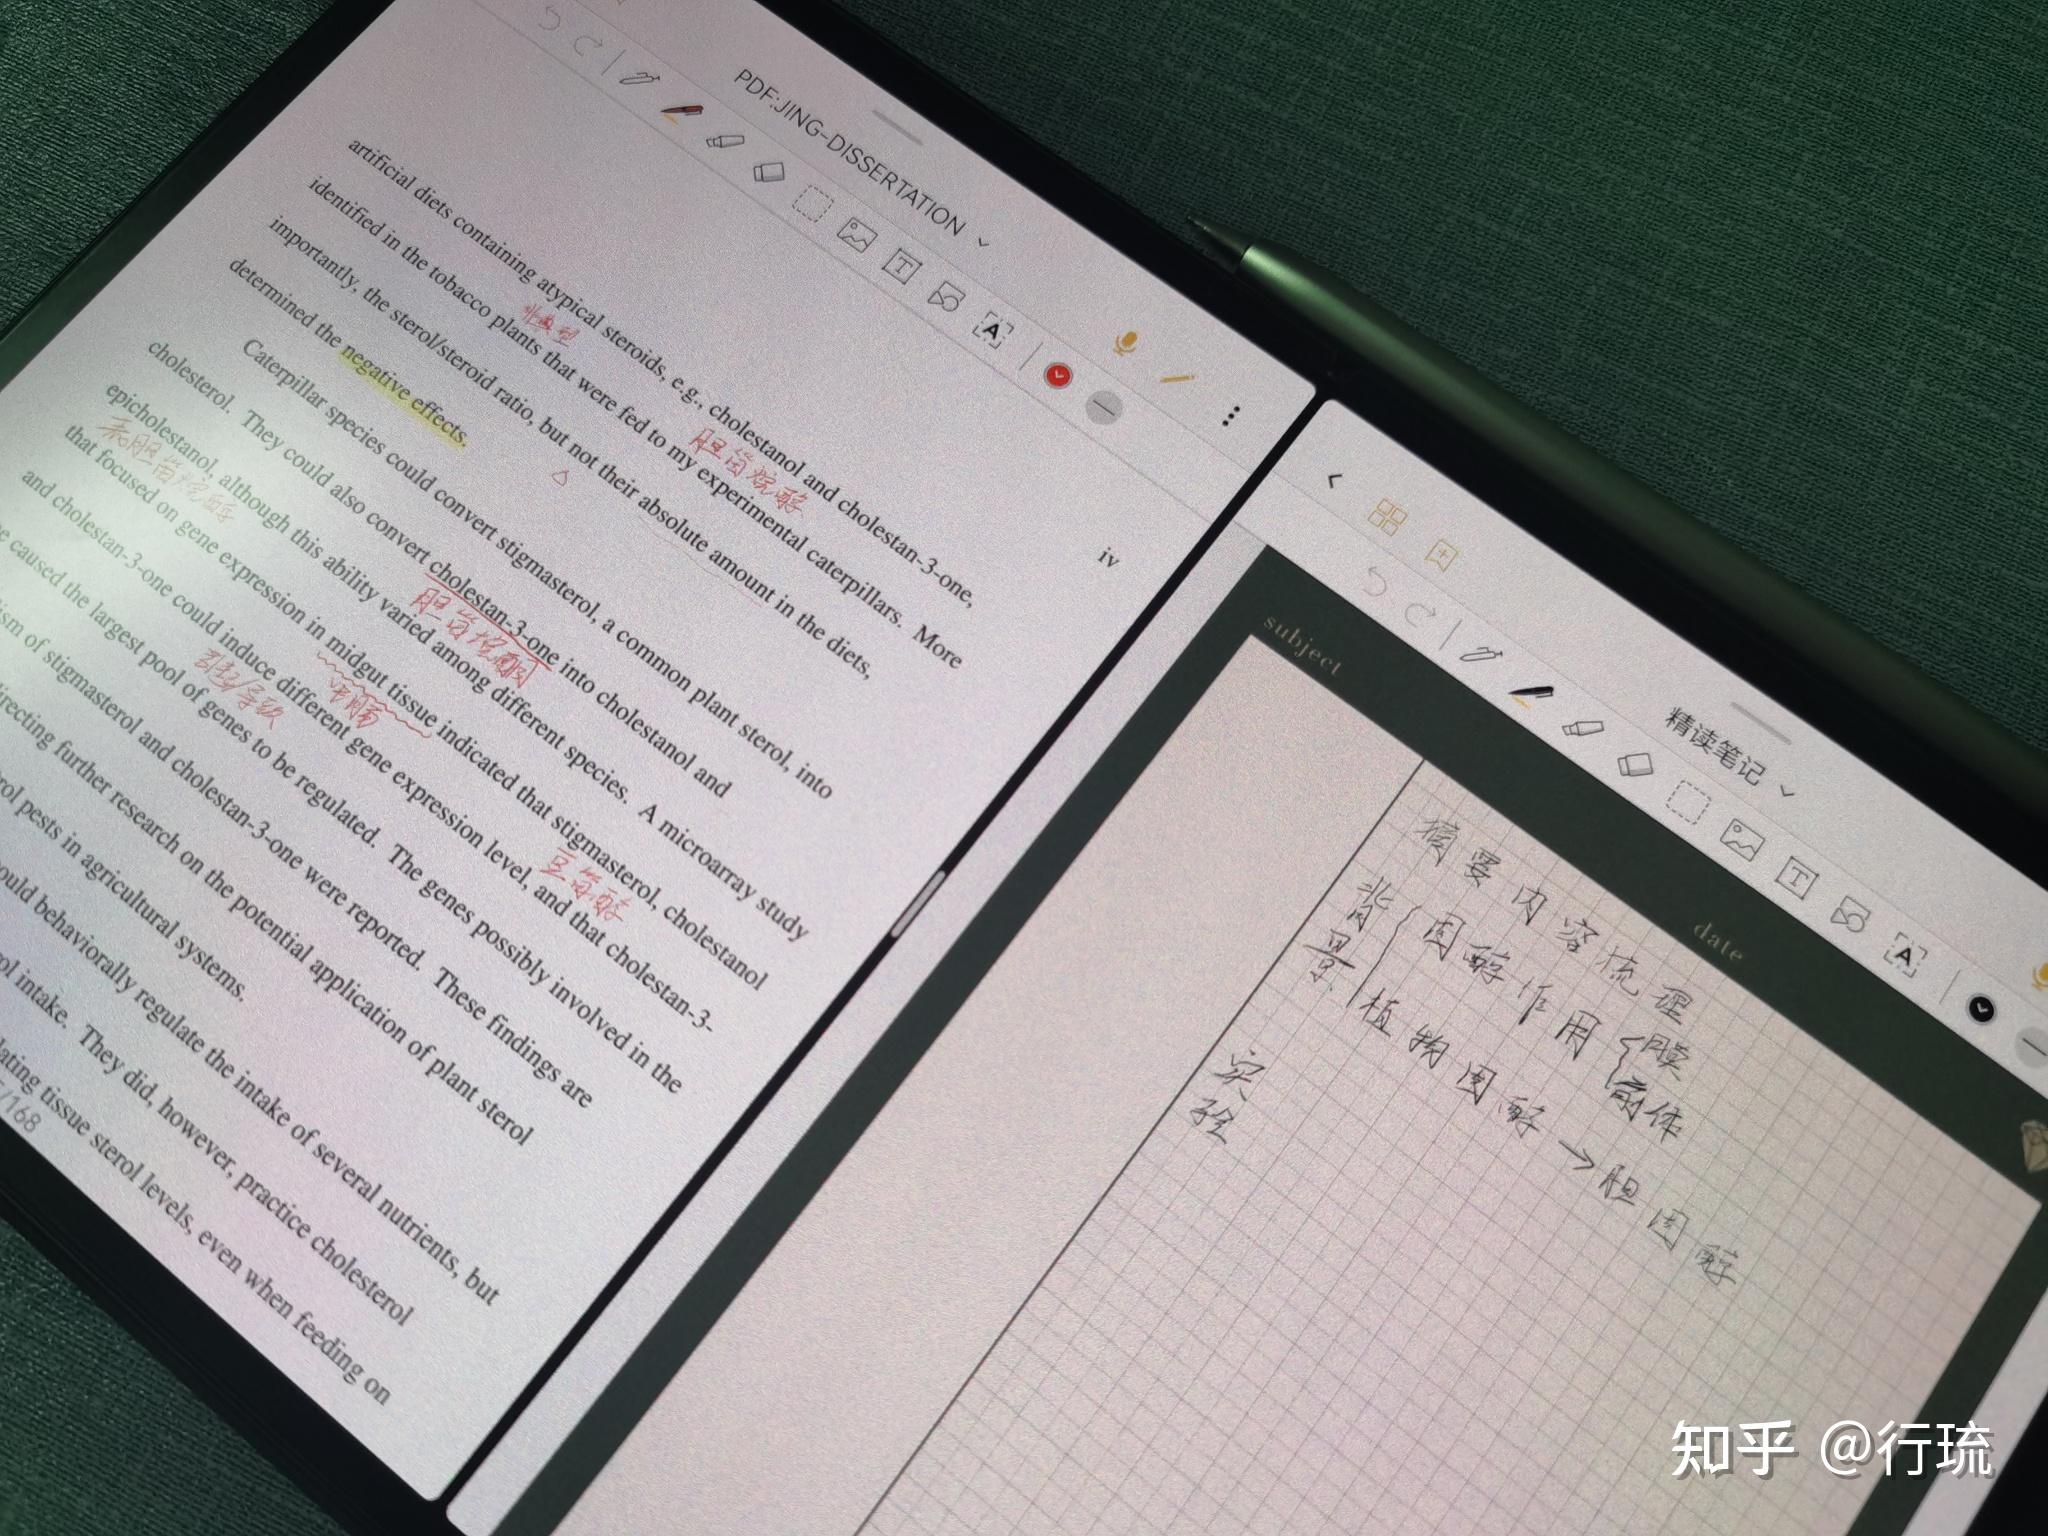 PDF:JING-DISSERTATION
iv
artificial diets containing atypical steroids, e.g., cholestanol and cholestan-3-one,
非典型
胆甾烷醇
identified in the tobacco plants that were fed to my experimental caterpillars. More
importantly, the sterol/steroid ratio, but not their absolute amount in the diets,
determined the negative effects.
Caterpillar species could convert stigmasterol, a common plant sterol, into
cholesterol. They could also convert cholestan-3-one into cholestanol and
胆甾烷酮
epicholestanol, although this ability varied among different species. A microarray study
表胆甾烷醇
that focused on gene expression in midgut tissue indicated that stigmasterol, cholestanol
中肠
豆甾醇
and cholestan-3-one could induce different gene expression level, and that cholestan-3-
引起/导致
e caused the largest pool of genes to be regulated. The genes possibly involved in the
ism of stigmasterol and cholestan-3-one were reported. These findings are
recting further research on the potential application of plant sterol
rol pests in agricultural systems.
ould behaviorally regulate the intake of several nutrients, but
ol intake. They did, however, practice cholesterol
lating tissue sterol levels, even when feeding on
/168
精读笔记
subject
date
摘要内容梳理
背景
固醇作用
膜
前体
植物固醇→胆固醇
实验
知乎 @行琉